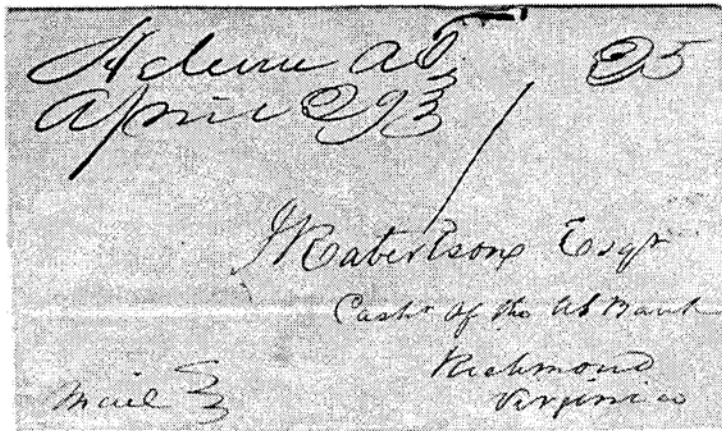 Helena AT 25
April 29
J Robertson Esqr
Cashr of the US Bank
Richmond
Virginia
Mail